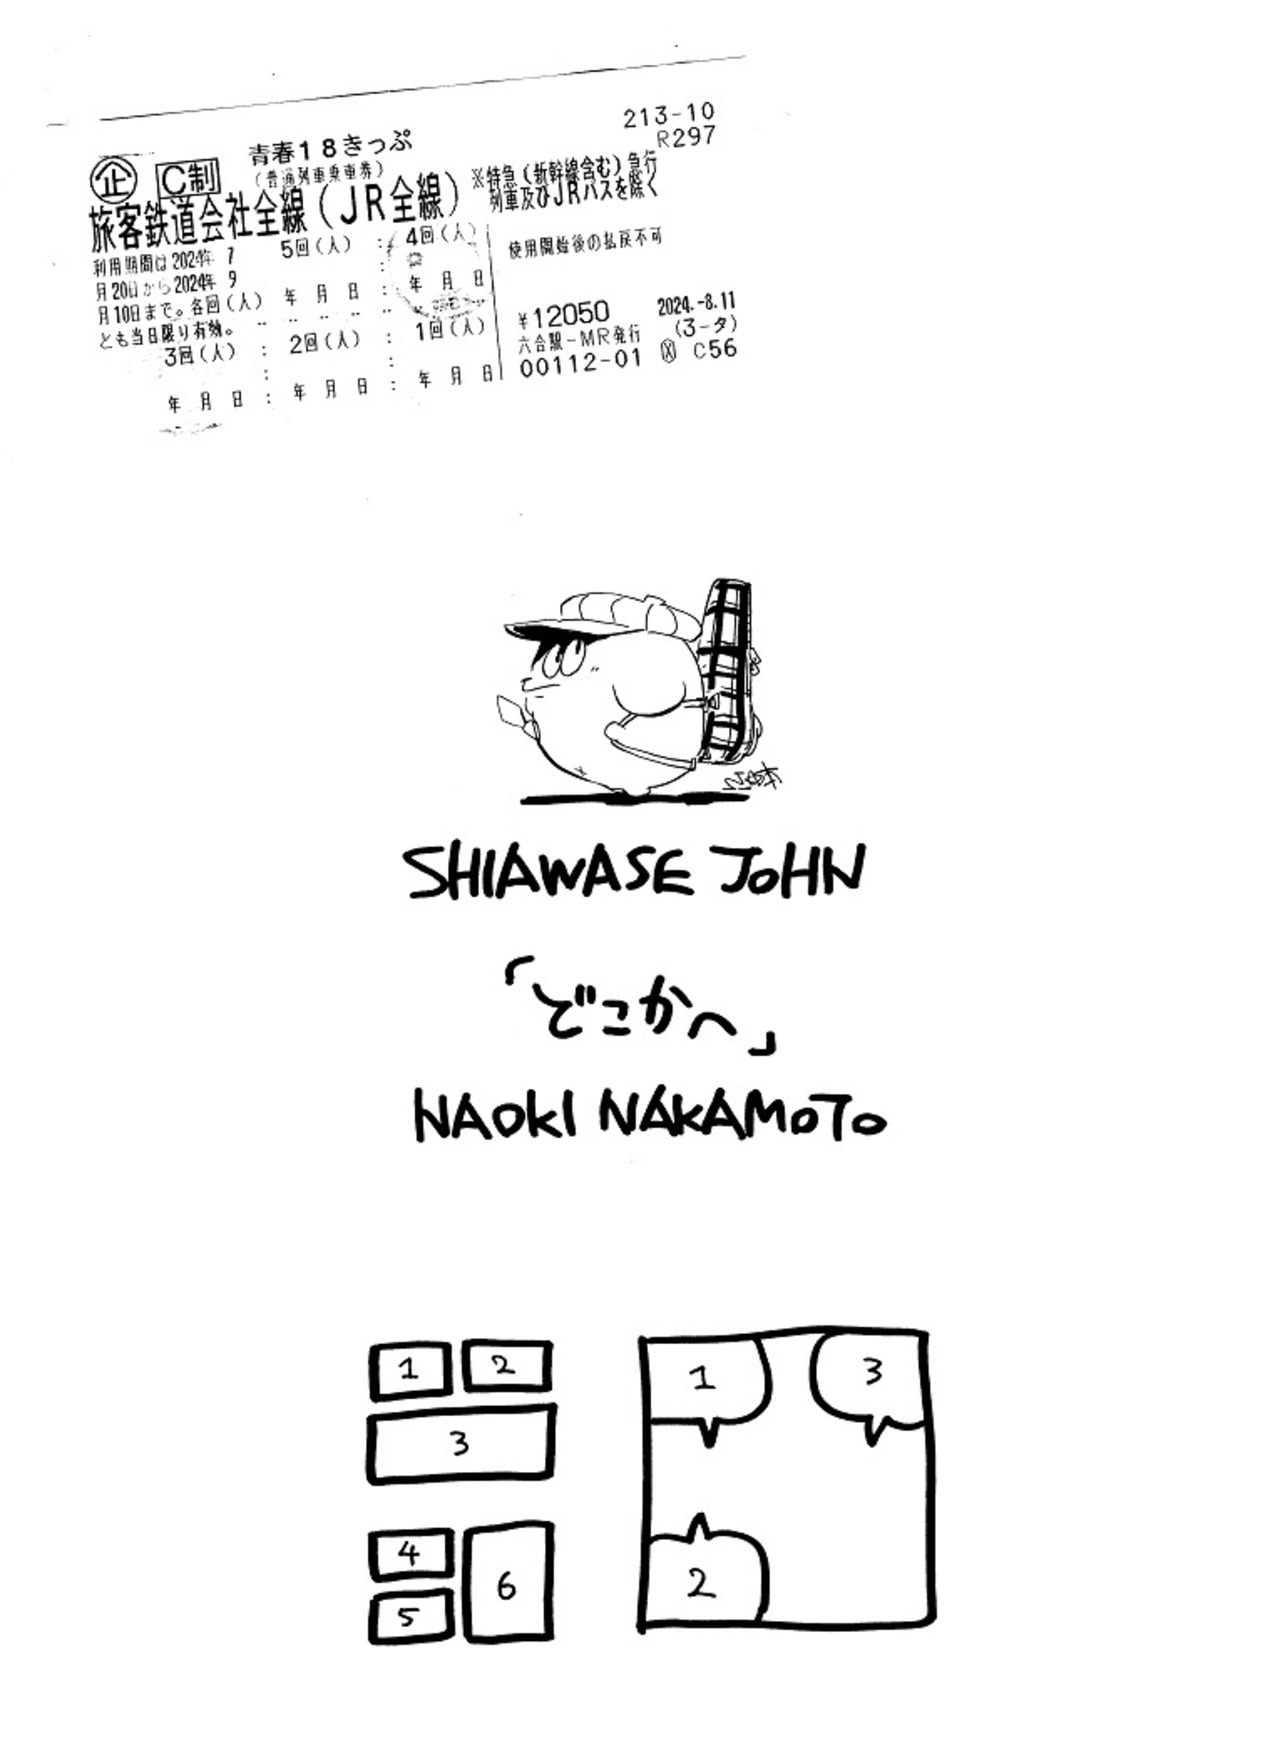 213-10
R297
青春18きっぷ
(普通列車乗車券)
企 C制
旅客鉄道会社全線(JR全線)
※特急(新幹線含む)急行
列車及びJRバスを除く
利用期間は2024年 7
月20日から2024年 9
月10日まで。各回(人)
とも当日限り有効。
5回(人) : 4回(人)
年 月 日 : 年 月 日
3回(人) : 2回(人) : 1回(人)
年 月 日 : 年 月 日 : 年 月 日
使用開始後の払戻不可
¥12050 2024.-8.11
六合駅-MR発行 (3-タ)
00112-01 C56
SHIAWASE JOHN
「どこかへ」
NAOKI NAKAMOTO
1 2
3
4
5
6
1 3
2